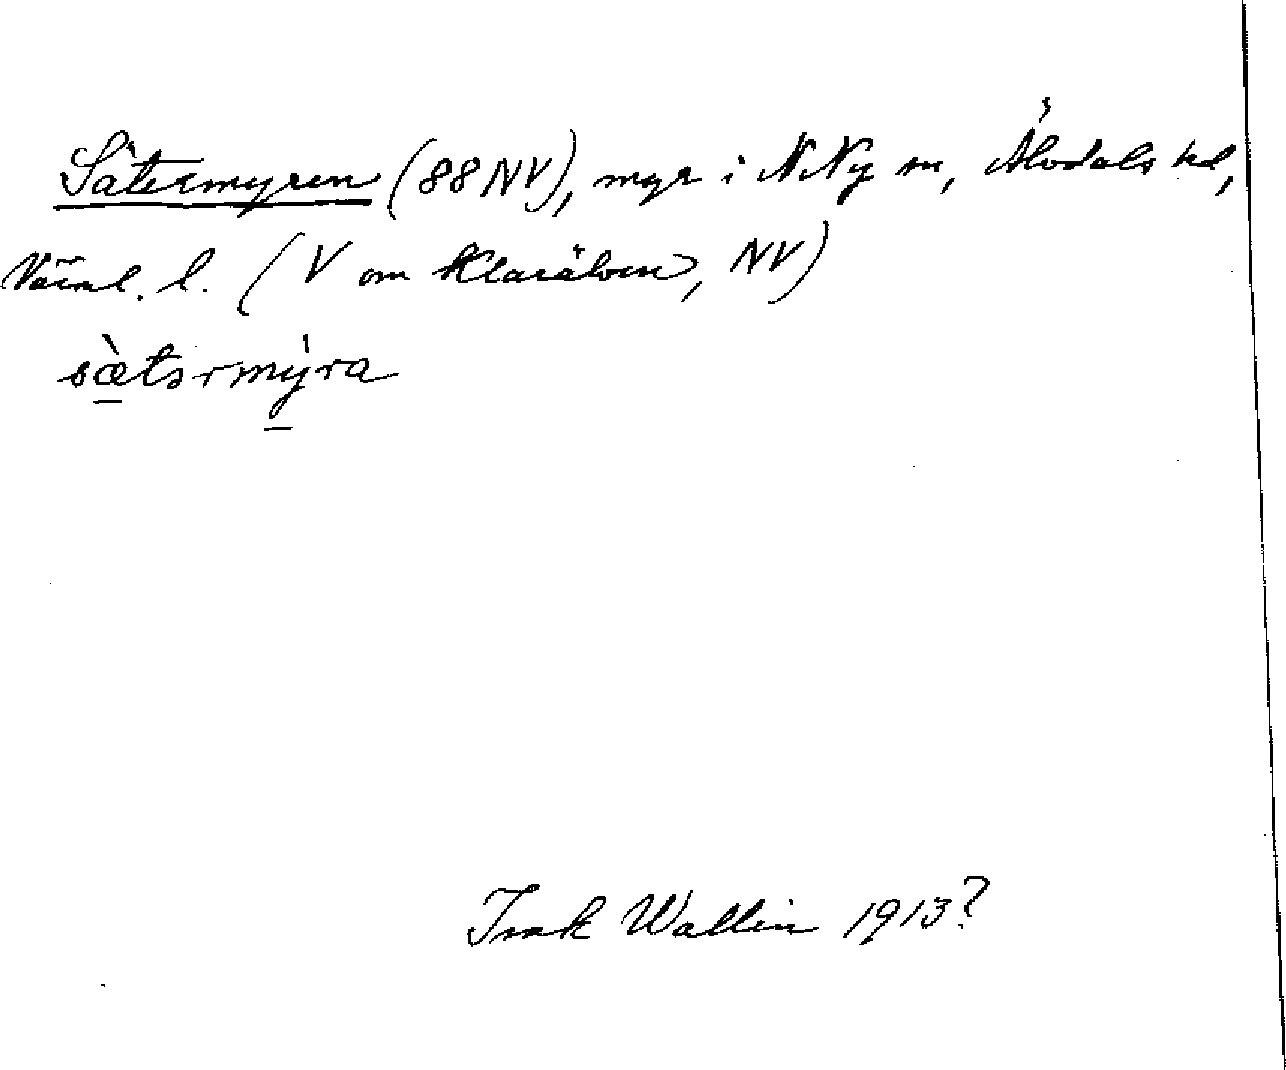 Sätermyren (88 NV), myr i N Ny sn, Älvdals hd,
Värml. l. (V om Klarälven, NV)
sæ̀tərmỳra
Isak Wallin 1913?